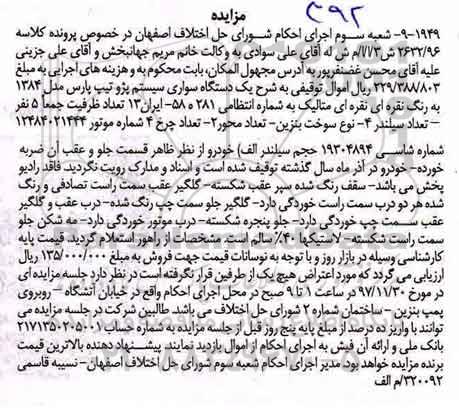 ۳۹۲
مزایده
۹-۱۹۴۹- شعبه سوم اجرای احکام شورای حل اختلاف اصفهان در خصوص پرونده کلاسه
۲۶۳۲/۹۶ ش ۳/ا/ا/ح ش له آقای علی سوادی به وکالت خانم مریم جهانبخش و آقای علی جزینی
علیه آقای محسن غضنفرپور به آدرس مجهول المکان، بابت محکوم به و هزینه های اجرایی به مبلغ
۲۲۹/۳۸۸/۸۰۳ ریال اموال توقیفی به شرح یک دستگاه سواری سیستم پژو تیپ پارس مدل ۱۳۸۴
به رنگ نقره ای نقره ای متالیک به شماره انتظامی ۲۸۱ ه ۵۸- ایران۱۳ تعداد ظرفیت جمعاً ۵ نفر
– تعداد سیلندر ۴- نوع سوخت بنزین- تعداد محور۲- تعداد چرخ ۴ شماره موتور ۱۲۴۸۴۰۲۱۴۴۴
شماره شاسی ۱۹۳۰۴۸۹۴ حجم سیلندر الف) خودرو از نظر ظاهر قسمت جلو و عقب آن ضربه
خورده- خودرو در آذر ماه سال گذشته توقیف شده است و اسناد و مدارک رویت نگردید. فاقد رادیو
پخش می باشد- سقف رنگ شده سپر عقب شکسته- گلگیر عقب سمت راست تصادفی و رنگ
شده هر دو درب سمت راست خوردگی دارد- گلگیر جلو سمت چپ رنگ شده- درب عقب و گلگیر
عقب سمت چپ خوردگی دارد- جلو پنجره شکسته- درب موتور خوردگی دارد- مه شکن جلو
سمت راست شکسته- لاستیکها ۴۰٪ سالم است. مشخصات از راهور استعلام گردید. قیمت پایه
کارشناسی وسیله در بازار روز و با توجه به نوسانات قیمت جهت فروش به مبلغ ۱۳۵/۰۰۰/۰۰۰ ریال
ارزیابی می گردد که مورد اعتراض هیچ یک از طرفین قرار نگرفته است در نظر دارد جلسه مزایده ای
در مورخ ۹۷/۱۱/۳۰ در ساعت ۸ تا ۹ صبح در محل اجرای احکام واقع در خیابان آتشگاه – روبروی
پمپ بنزین- ساختمان شماره ۲ شورای حل اختلاف می باشد. طالبین شرکت در جلسه مزایده می
توانند با واریز ده درصد از مبلغ پایه پنج روز قبل از جلسه مزایده به شماره حساب ۲۱۷۱۳۵۰۲۰۵۰۰۱
بانک ملی و ارائه آن فیش به اجرای احکام از اموال بازدید نمایند. پیشنهاد دهنده بالاترین قیمت
برنده مزایده خواهد بود. مدیر اجرای احکام شعبه سوم شورای حل اختلاف اصفهان- نسیبه قاسمی
۳۲۰۰۹۲/م الف